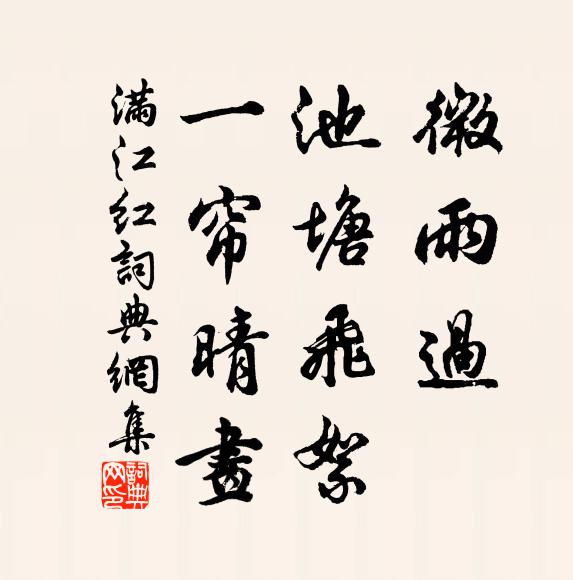 微雨過
池塘飛絮
一帘晴晝
滿江紅詞典網集
詞典网印